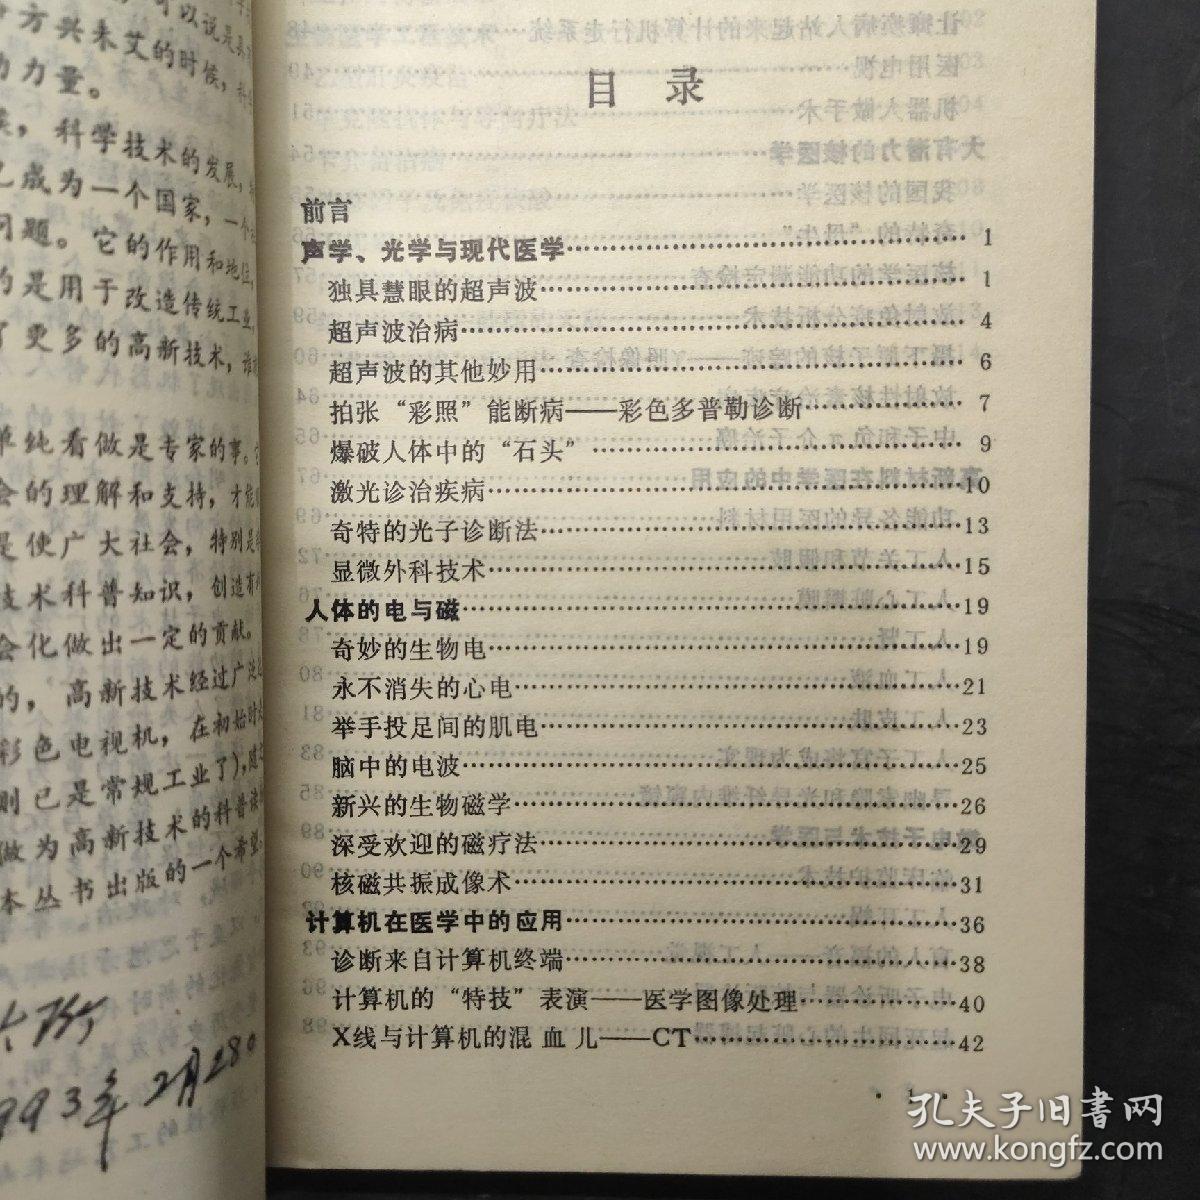 可以说是
方兴未艾的时候，
力量。
，科学技术的发展，
已成为一个国家，一个
问题。它的作用和地位，
的是用于改造传统工业，
了更多的高新技术，谁
单纯看做是专家的事。
会的理解和支持，才能
是使广大社会，特别是
技术科普知识，创造有
会化做出一定的贡献。
的，高新技术经过广泛
彩色电视机，在初始时
则已是常规工业了），
做为高新技术的科普读
本丛书出版的一个希望
993年2月28日
目 录
前言
声学、光学与现代医学……………………1
独具慧眼的超声波……………………1
超声波治病……………………4
超声波的其他妙用……………………6
拍张“彩照”能断病——彩色多普勒诊断……………………7
爆破人体中的“石头”……………………9
激光诊治疾病……………………10
奇特的光子诊断法……………………13
显微外科技术……………………15
人体的电与磁……………………19
奇妙的生物电……………………19
永不消失的心电……………………21
举手投足间的肌电……………………23
脑中的电波……………………25
新兴的生物磁学……………………26
深受欢迎的磁疗法……………………29
核磁共振成像术……………………31
计算机在医学中的应用……………………36
诊断来自计算机终端……………………38
计算机的“特技”表演——医学图像处理……………………40
X线与计算机的混血儿——CT……………………42
· 1 ·
孔夫子旧书网
www.kongfz.com